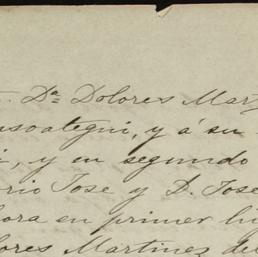 Da Dolores Mart
soategui, y á su
, y en segundo
rio Jose y D. Jose
ora en primer lu
lores Martinez de